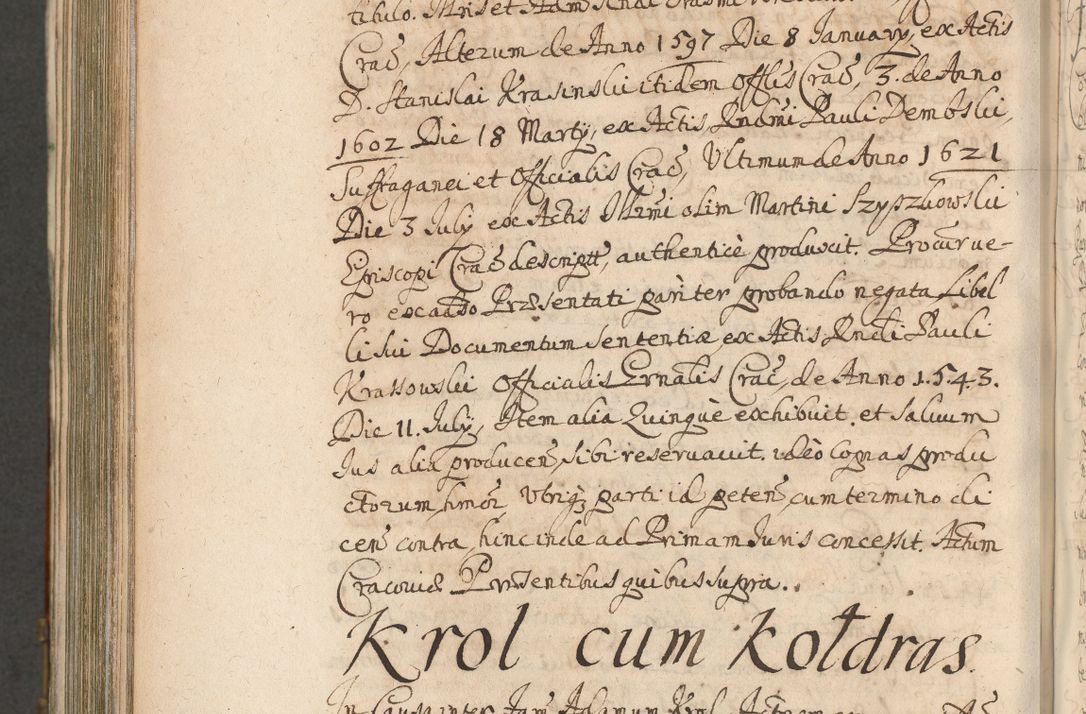 titulo. Illris et Adm
Crac̃, Alterum de Anno 1597 Die 8 Januarÿ, ex Actis
D. Stanislai Krasinskii itidem Offlis Crac̃, 3. de Anno
1602 Die 18 Martÿ, ex Actis Rndmi Pauli Dembskii,
Suffraganei et Officialis Crac̃, Vltimum de Anno 1621
Die 3 Julÿ ex Actis Illrmi olim Martini Szyszkowskii
Episcopi Crac̃ descript̃, authenticè produxit. Procur ve-
ro ex adso Præsentati pariter probando negata Libel
li sui Documentum sententiæ, ex Actis Rndi Pauli
Krassowskii Officialis Grnalis Crac̃, de Anno 1.5.4.3.
Die 11. Julÿ, Item alia Quinquè exhibuit. et saluum
Jus alia producen̄, sibi reseruauit. ideò copias produ
ctorum hmõi Vtriq3 parti id peten̄, cum termino di
cen̄ contra hinc inde ad Primam Juris concessit. Actum
Cracoviæ Præsentibus quibus supra..
Krol cum Kołdras.
In Causa inter Adamum Krol Actorem